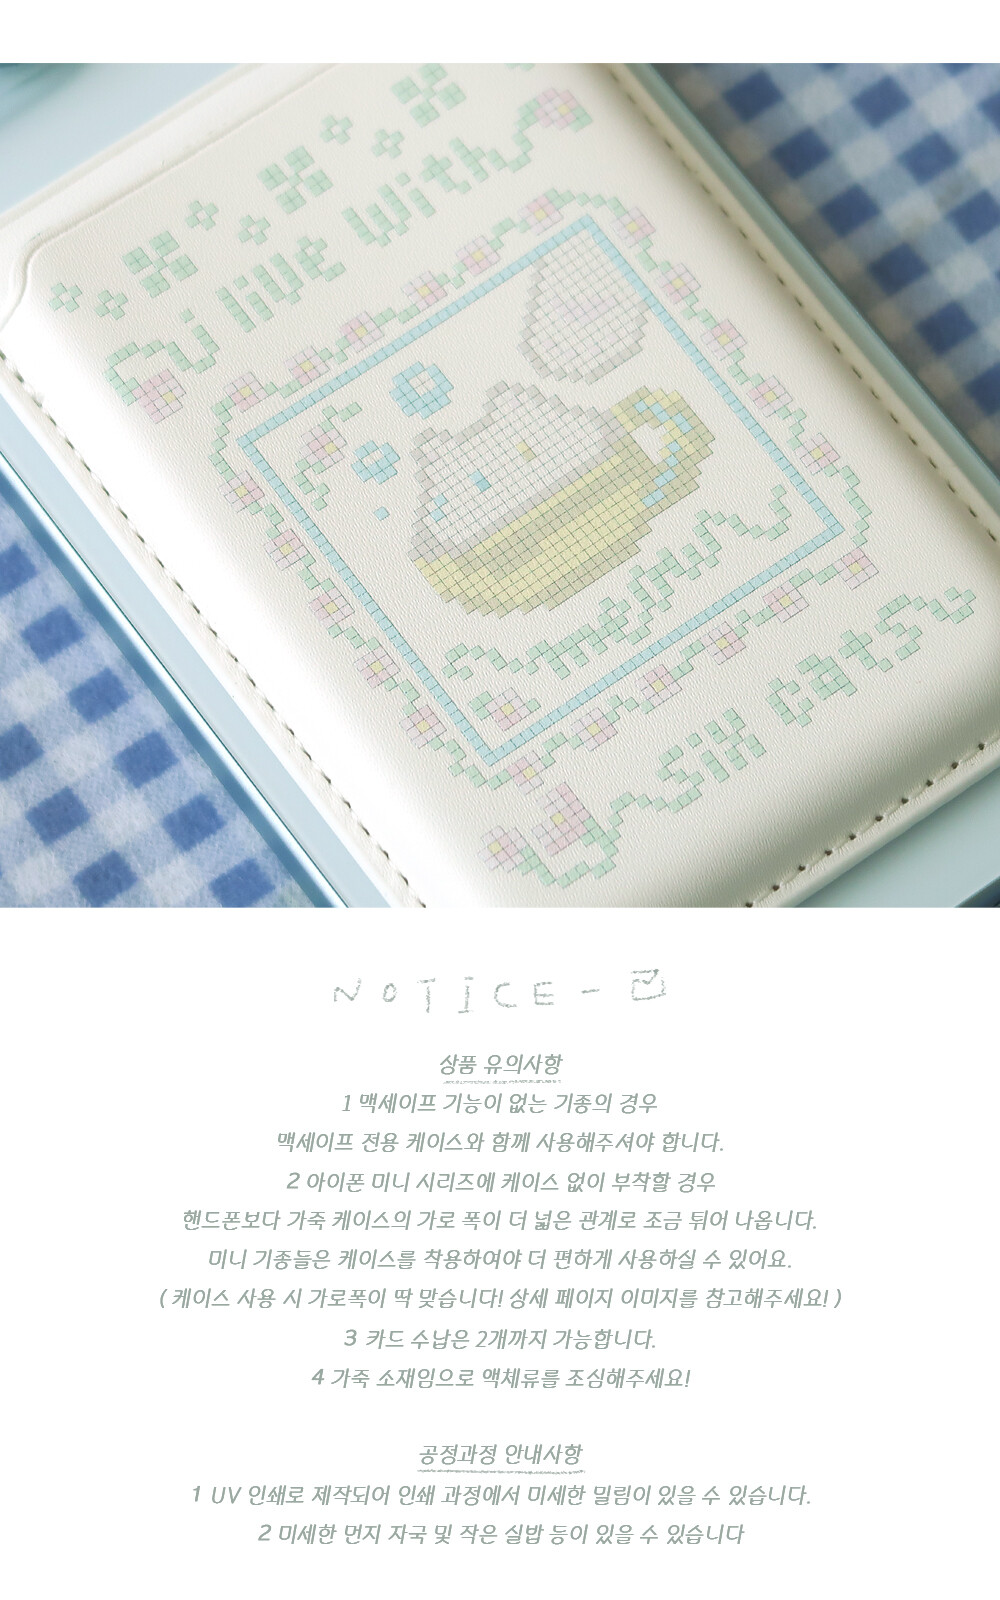 i live with
meonjy
six cats
NOTICE -
상품 유의사항
1 맥세이프 기능이 없는 기종의 경우
맥세이프 전용 케이스와 함께 사용해주셔야 합니다.
2 아이폰 미니 시리즈에 케이스 없이 부착할 경우
핸드폰보다 가죽 케이스의 가로 폭이 더 넓은 관계로 조금 튀어 나옵니다.
미니 기종들은 케이스를 착용하여야 더 편하게 사용하실 수 있어요.
( 케이스 사용 시 가로폭이 딱 맞습니다! 상세 페이지 이미지를 참고해주세요! )
3 카드 수납은 2개까지 가능합니다.
4 가죽 소재임으로 액체류를 조심해주세요!
공정과정 안내사항
1 UV 인쇄로 제작되어 인쇄 과정에서 미세한 밀림이 있을 수 있습니다.
2 미세한 먼지 자국 및 작은 실밥 등이 있을 수 있습니다